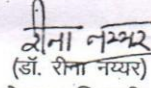 रीना नय्यर
(डॉ. रीना नय्यर)